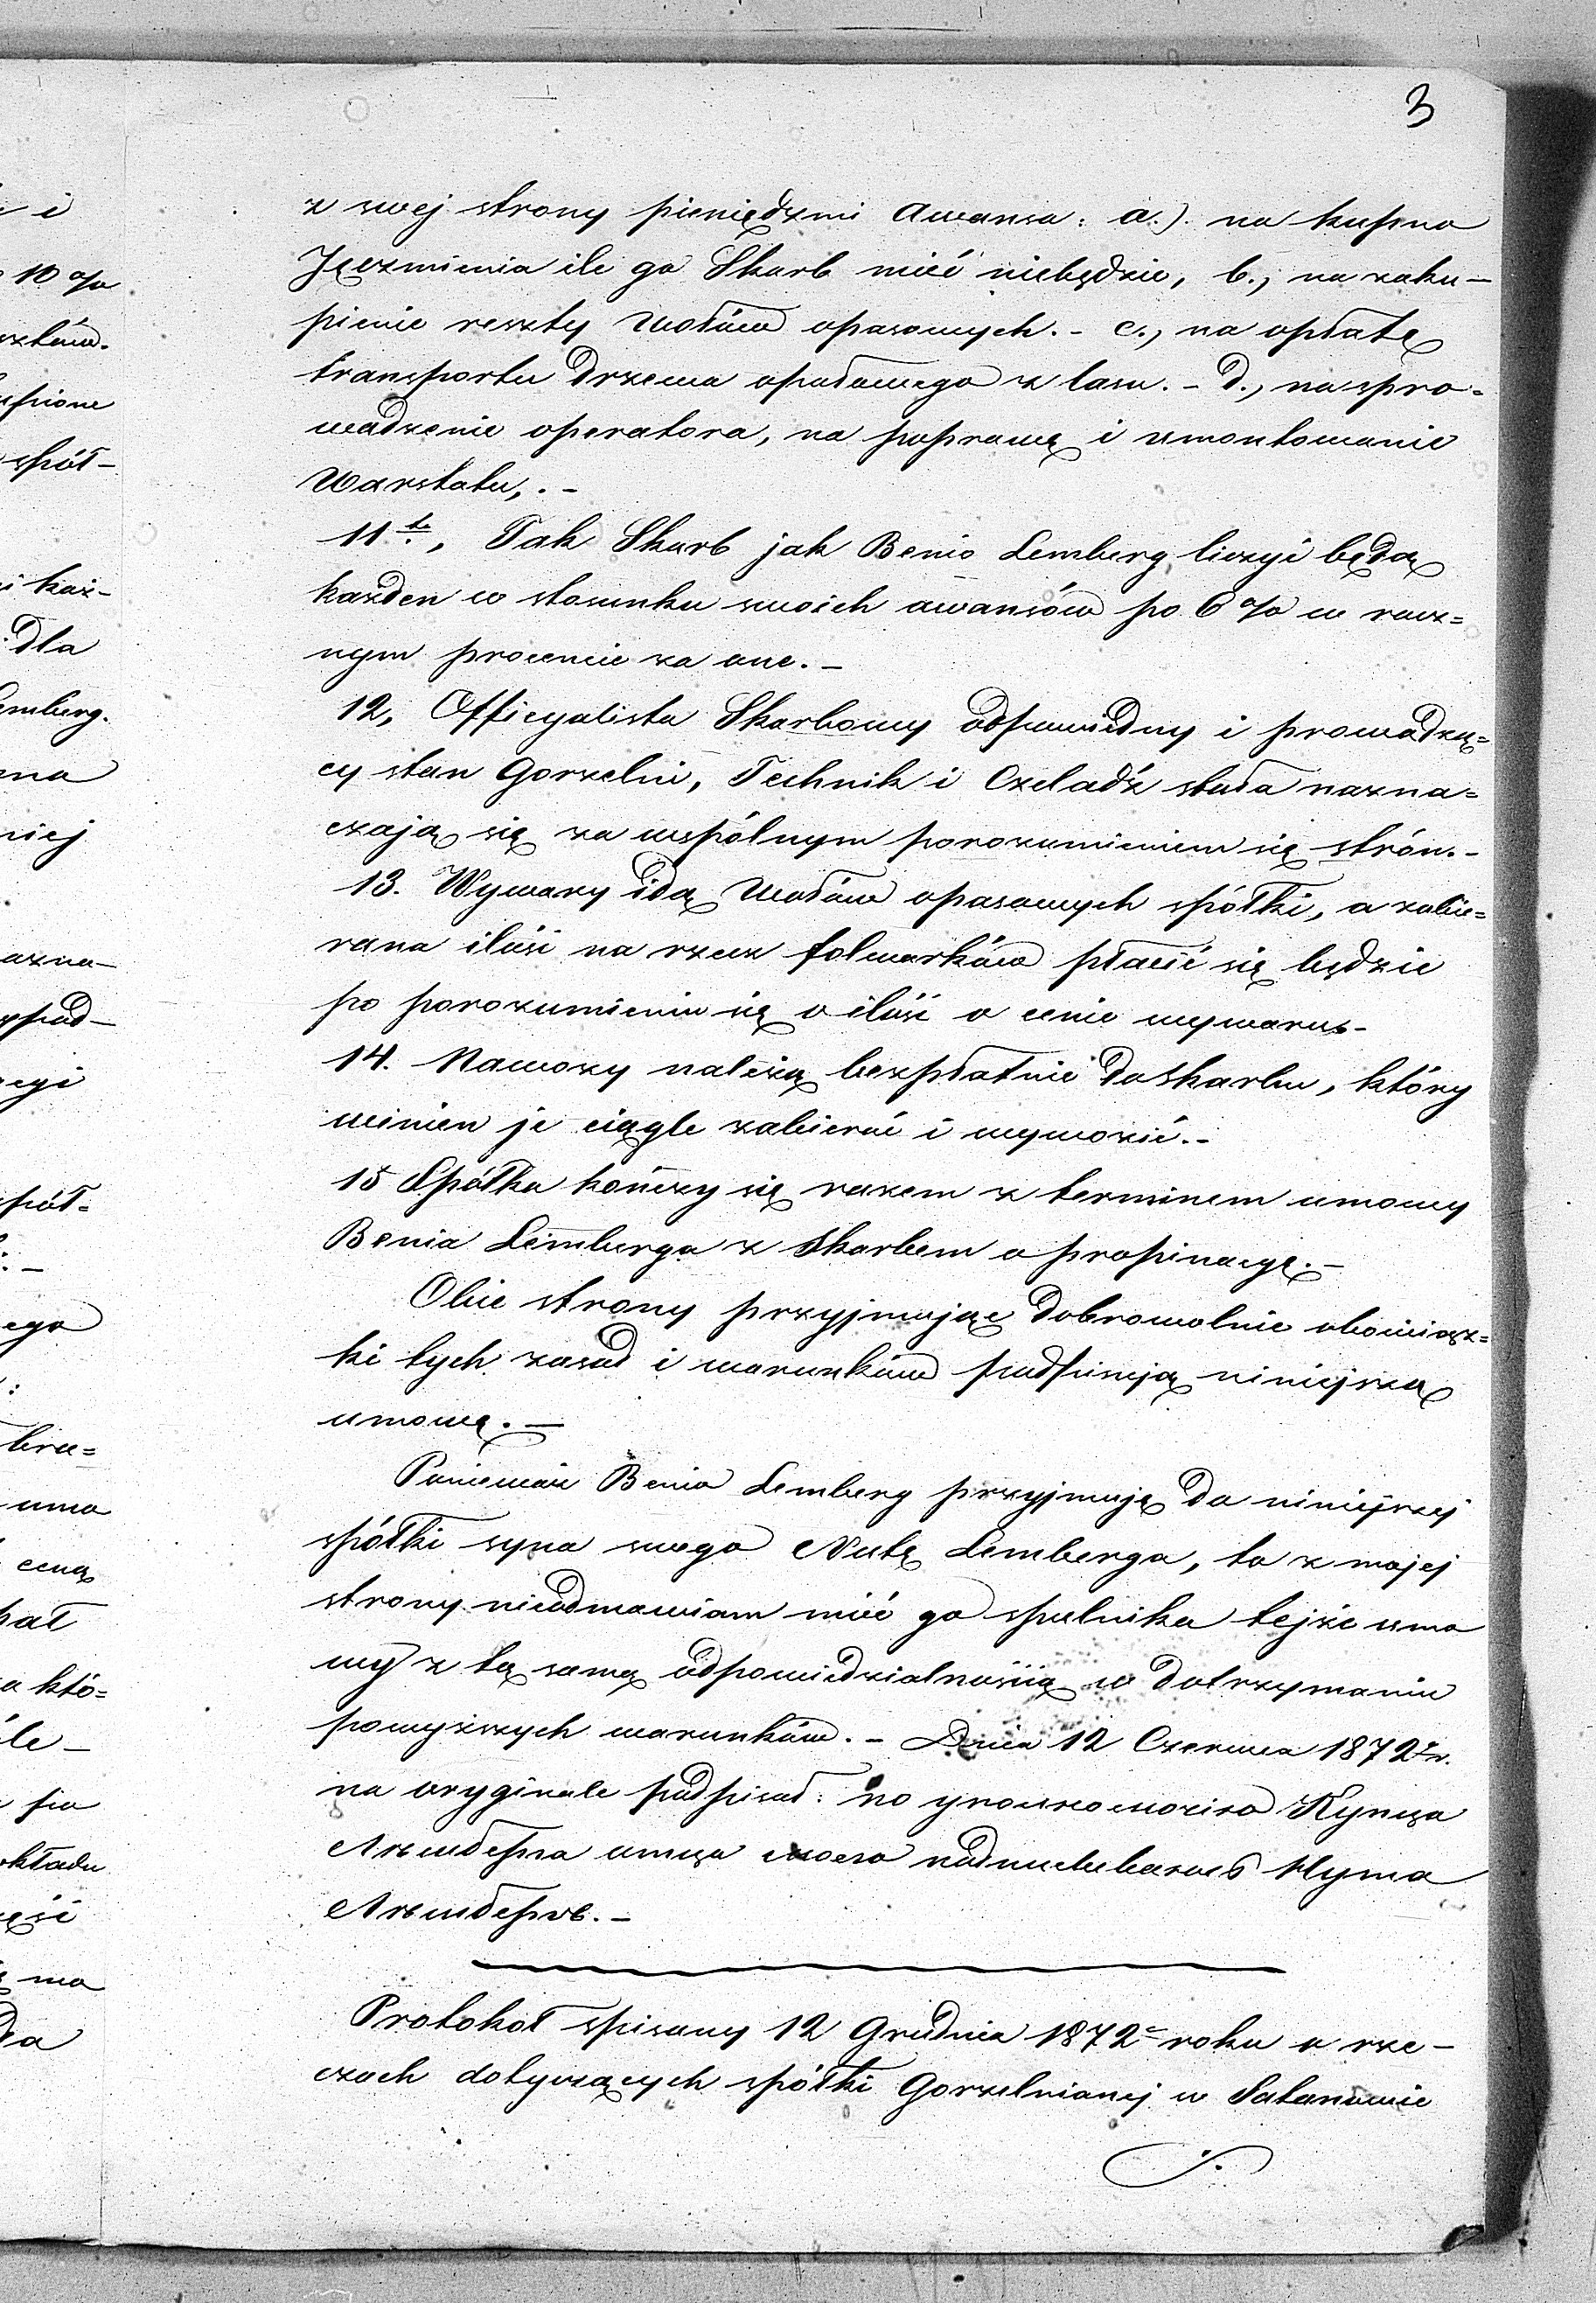 3
z swej strony pieniędzmi Awansa: a.). na kupno
Jęczmienia ile go Skarb mieć niebędzie, b., na zaku-
pienie reszty Wołów opasowych. - c., na opłatę
transportu drzewa opałowego z lasu. - d., na spro-
wadzenie operatora, na poprawę i umontowanie
Warstatu,. -
11te, Tak Skarb jak Benio Lemberg liczyć będą
każden w stosunku swoich awansów po 6 % w rocz=
nym procencie za one. -
12, Officyalista Skarbowy odpowiedny i prowadzą=
cy stan Gorzelni, Technik i Czeladź stała nazna=
czają się za wspólnym porozumieniem się strón. -
13. Wywary idą Wołów opasowych spółki, a zabie=
rana ilość na rzecz folwarków płacić się będzie
po porozumieniu się o ilość o cenie wywaru. -
14. Nawozy należą bezpłatnie do Skarbu, który
winien je ciągle zabierać i wywozić. -
15 Spółka kończy się razem z terminem umowy
Benia Lemberga z Skarbem o propinacyę. -
Obie strony przyjmując dobrowolnie obowiąz=
ki tych zasad i warunków podpisują niniejszą
umowę. -
Ponieważ Benio Lemberg przyjmuję do niniejszej
spółki syna swego Nutę Lemberga, to z mojej
strony nieodmawiam mieć go spulnika tejże umo
wy z tą samą odpowiedzialnością w dotrzymaniu
powyższych warunków. - Dnia 12 Czerwca 1872 r.
na oryginale podpisał: по уполномочію
Лемберга Нута
Лембергъ. -
Protokoł spisany 12 Grudnia 1872 roku o rze-
czach dotyczących spółki Gorzelnianej w Satanowie